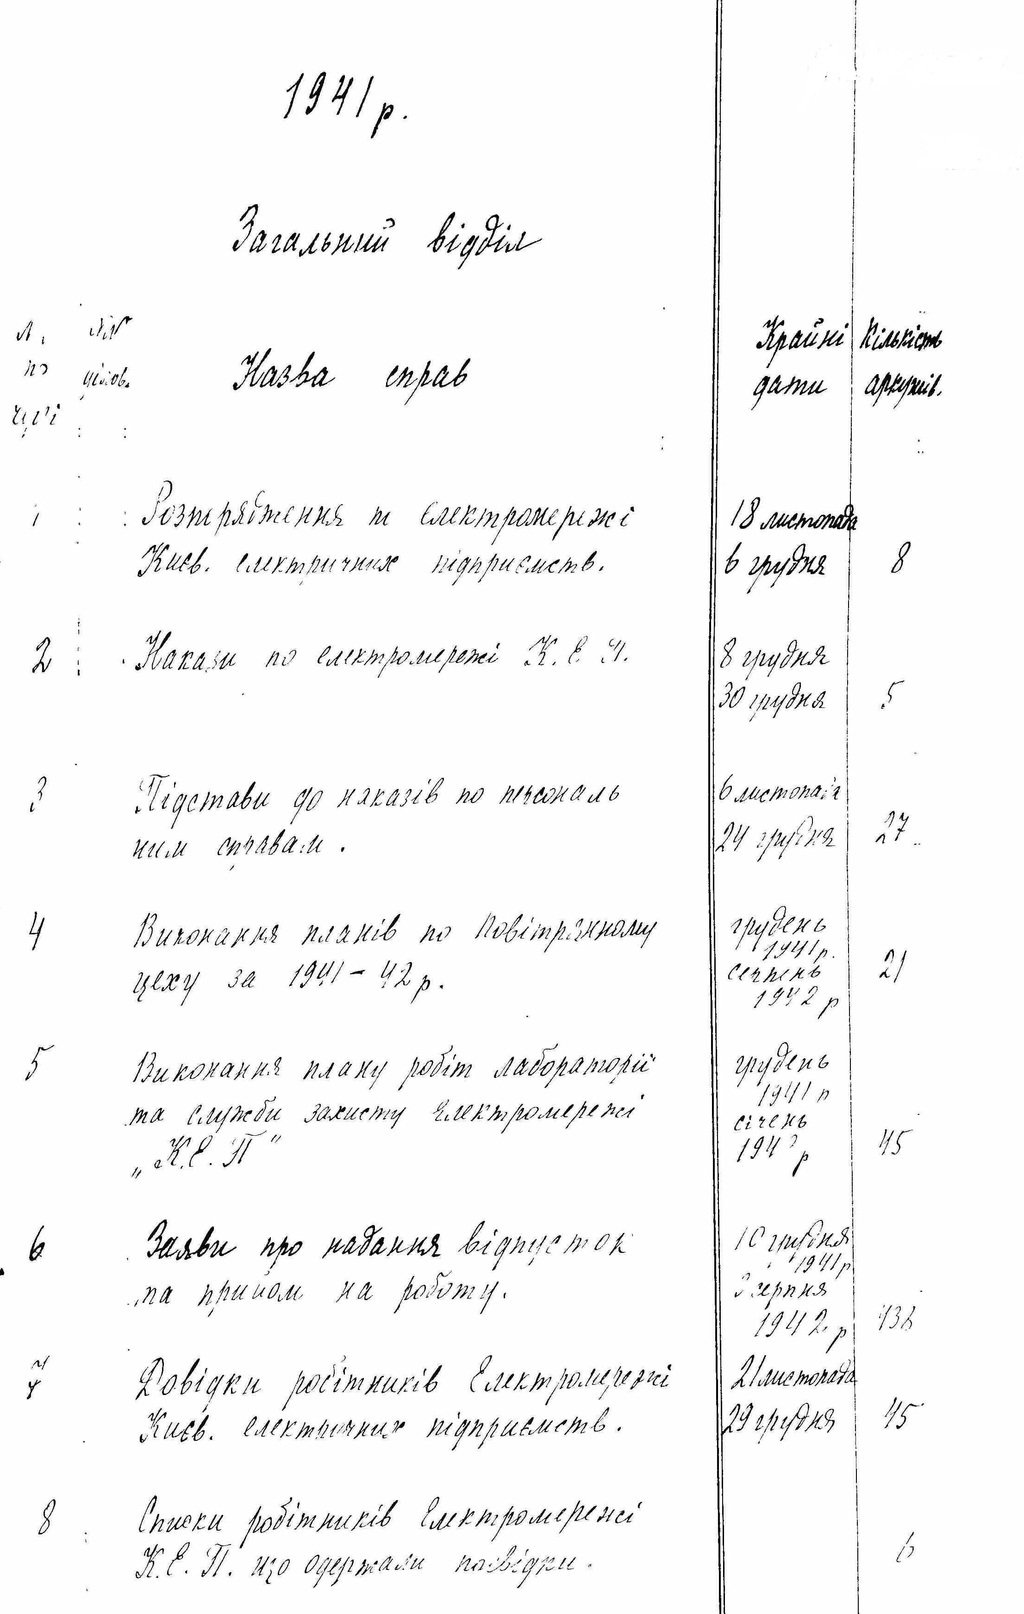 1941 р.
Загальний відділ
по
Назва справ
Крайні дати
Кількість аркушів.
1 Розпорядження по Електромережі 18 листопада
Києв. електричних підприємств. 6 грудня 8
2 Накази по електромережі К. Е. П. 8 грудня
30 грудня 5
3 Підстави до наказів по персональ 6 листопада
ним справам. 24 грудня 27
4 Виконання планів по Повітрянному грудень
1941 р.
цеху за 1941 – 42 р. серпень 21
1942 р
5 Виконання плану робіт лабораторії грудень
1941 р
та служби захисту Електромережі січень
„К.Е.П" р 45
6 Заяви про надання відпусток 10 грудня
1941 р
та прийом на роботу. серпня
1942 р
7 Довідки робітників Електромережі 21 листопада
Києв. електричних підприємств. 29 грудня 45
8 Списки робітників Електромережі
К.Е.П. що одержали посвідки. 6